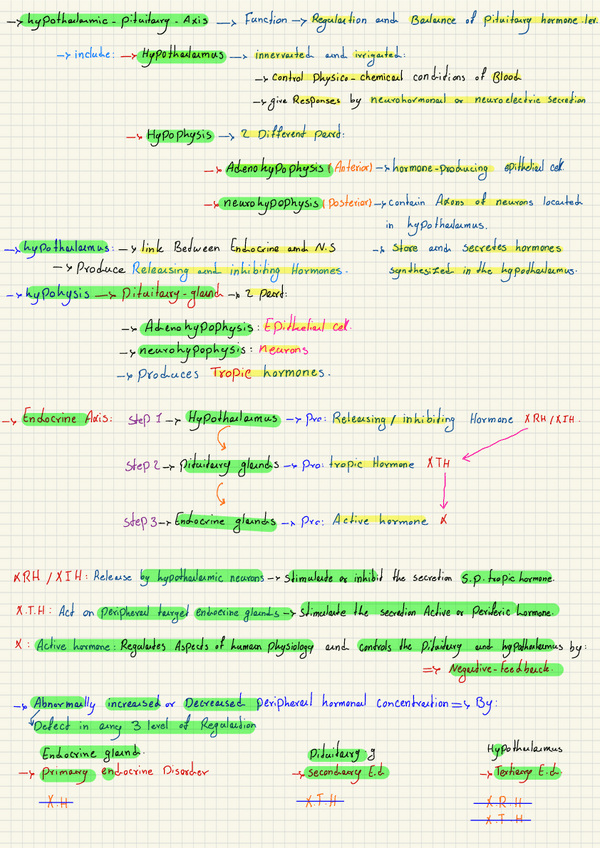 → hypothalamic - pituitary - Axis → Function → Regulation and Balance of Pituitary hormone lev.
→ include: → Hypothalamus → innervated and irrigated:
→ Control Physico-chemical conditions of Blood
→ give Responses by neurohormonal or neuroelectric secretion
→ Hypophysis → 2 Different part:
→ Adenohypophysis (Anterior) → hormone-producing epithelial cell.
→ neurohypophysis (Posterior) → contain Axons of neurons located
in hypothalamus.
→ hypothalamus: → link Between Endocrine and N.S → Store and secretes hormones
→ Produce Releasing and inhibiting Hormones. synthesized in the hypothalamus.
→ hypohysis → Pituitary-gland → 2 part:
→ Adenohypophysis: Epithelial cell.
→ neurohypophysis: neurons
→ Produces Tropic hormones.
→ Endocrine Axis: Step 1 → Hypothalamus → Pro: Releasing / inhibiting Hormone XRH / XIH.
Step 2 → pituitary glands → Pro: tropic Hormone XTH
Step 3 → Endocrine glands → Pro: Active hormone X
XRH / XIH: Release by hypothalamic neurons → Stimulate or inhibit the secretion S.p. tropic hormone.
X.T.H: Act on peripheral target endocrine glands → Stimulate the secretion Active or Periferic hormone.
X: Active hormone: Regulates Aspects of human physiology and controls the Pituitary and hypothalamus by:
⇒ Negative-feedback.
→ Abnormally increased or Decreased peripheral hormonal concentration ⇒ By:
Defect in any 3 level of Regulation
Endocrine gland. Pituitary g Hypothalamus
→ primary endocrine Disorder → secondary E.d → Tertiary E.d.
X.H X.T.H X.R.H
X.T.H